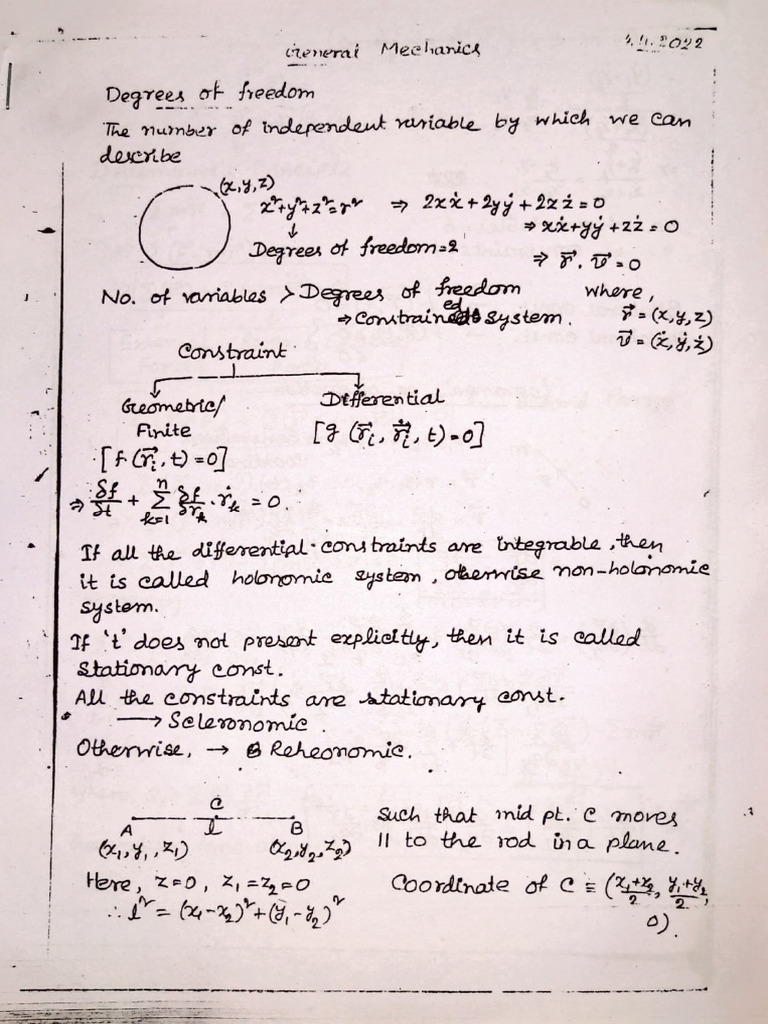 General Mechanics
Degrees of freedom
The number of independent variable by which we can
describe
(x,y,z)
x²+y²+z²=r² ⇒ 2xẋ+2yẏ+2zż=0
⇒ xẋ+yẏ+zż=0
↓
Degrees of freedom=2
⇒ r⃗.v⃗=0
No. of variables > Degrees of freedom where,
⇒ Constrained system. r⃗=(x,y,z)
v⃗=(ẋ,ẏ,ż)
Constraint
Geometric/ Differential
Finite [g(r⃗ᵢ, r⃗̇ᵢ, t)=0]
[f(r⃗ᵢ,t)=0]
⇒ δf/δt + Σₖ₌₁ⁿ δf/δrₖ . ṙₖ = 0.
If all the differential constraints are integrable, then
it is called holonomic system, otherwise non-holonomic
system.
If 't' does not present explicitly, then it is called
Stationary const.
All the constraints are stationary const.
→ Scleronomic.
Otherwise, → Reheonomic.
C
A l B
(x₁,y₁,z₁) (x₂,y₂,z₂)
Such that mid pt. C moves
11 to the rod in a plane.
Here, z=0, z₁=z₂=0
∴ l² = (x₁-x₂)²+(y₁-y₂)²
Coordinate of C ≡ (x₁+x₂/2, y₁+y₂/2,
0).